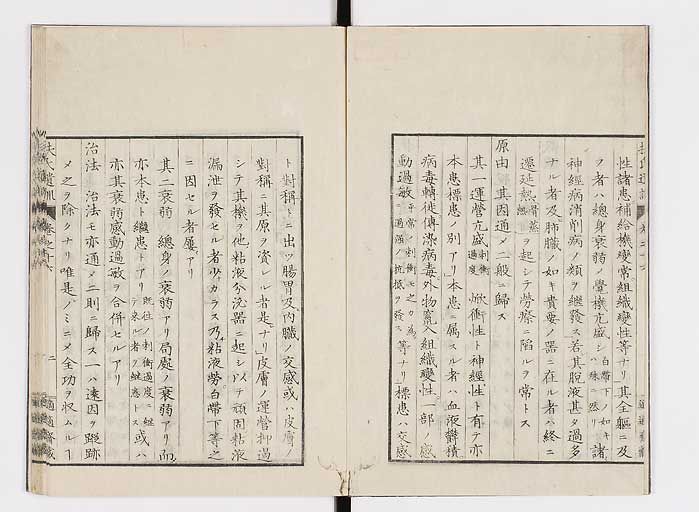 性諸患補給機變常組織變性等ナリ其全軀ニ及
フ者ハ總身衰弱ノ覺機亢盛 白帶下ノ如キハ殊ニ然リ 諸
神經病消削病ノ類ヲ繼發ス若其脫液甚タ過多
ナル者及肺臟ノ如キ貴要ノ器ニ在ル者ハ終ニ
遷延熱ヲ起シテ勞瘵ニ陷ルヲ常トス
原由 其因通メ二般ニ歸ス
其一運營亢盛 刺衝過度 焮衝性ト神經性ト有テ亦
本患標患ノ別アリ本患ニ属スル者ハ血液鬱積
病毒轉徙傳染病毒外物竄入組織變性一部ノ感
動過敏 平常ノ刺衝モ之カ為ニ過强ノ抗抵ヲ發ス 等ナリ標患ハ交感
ト對稱トニ出ツ腸胃及內臟ノ交感或ハ皮膚ノ
對稱ニ其原ヲ資レル者是ナリ皮膚ノ運營抑過
シテ其機ヲ他粘液分泌器ニ起シ以テ頑固粘液
漏泄ヲ發セル者少カラス乃粘液勞白帶下等之
ニ因セル者屢アリ
其二衰弱 總身ノ衰弱アリ局處ノ衰弱アリ而
亦本患ト繼患トアリ 既往ノ刺衝過度ニ繼テ來ル者ヲ繼患トス 或ハ
亦其衰弱感動過敏ヲ合併セルアリ
治法 治法モ亦通メ二則ニ歸ス一ハ遠因ヲ蹤跡
メ之ヲ除クナリ唯是ノミニメ全功ヲ收ムルヿ
二